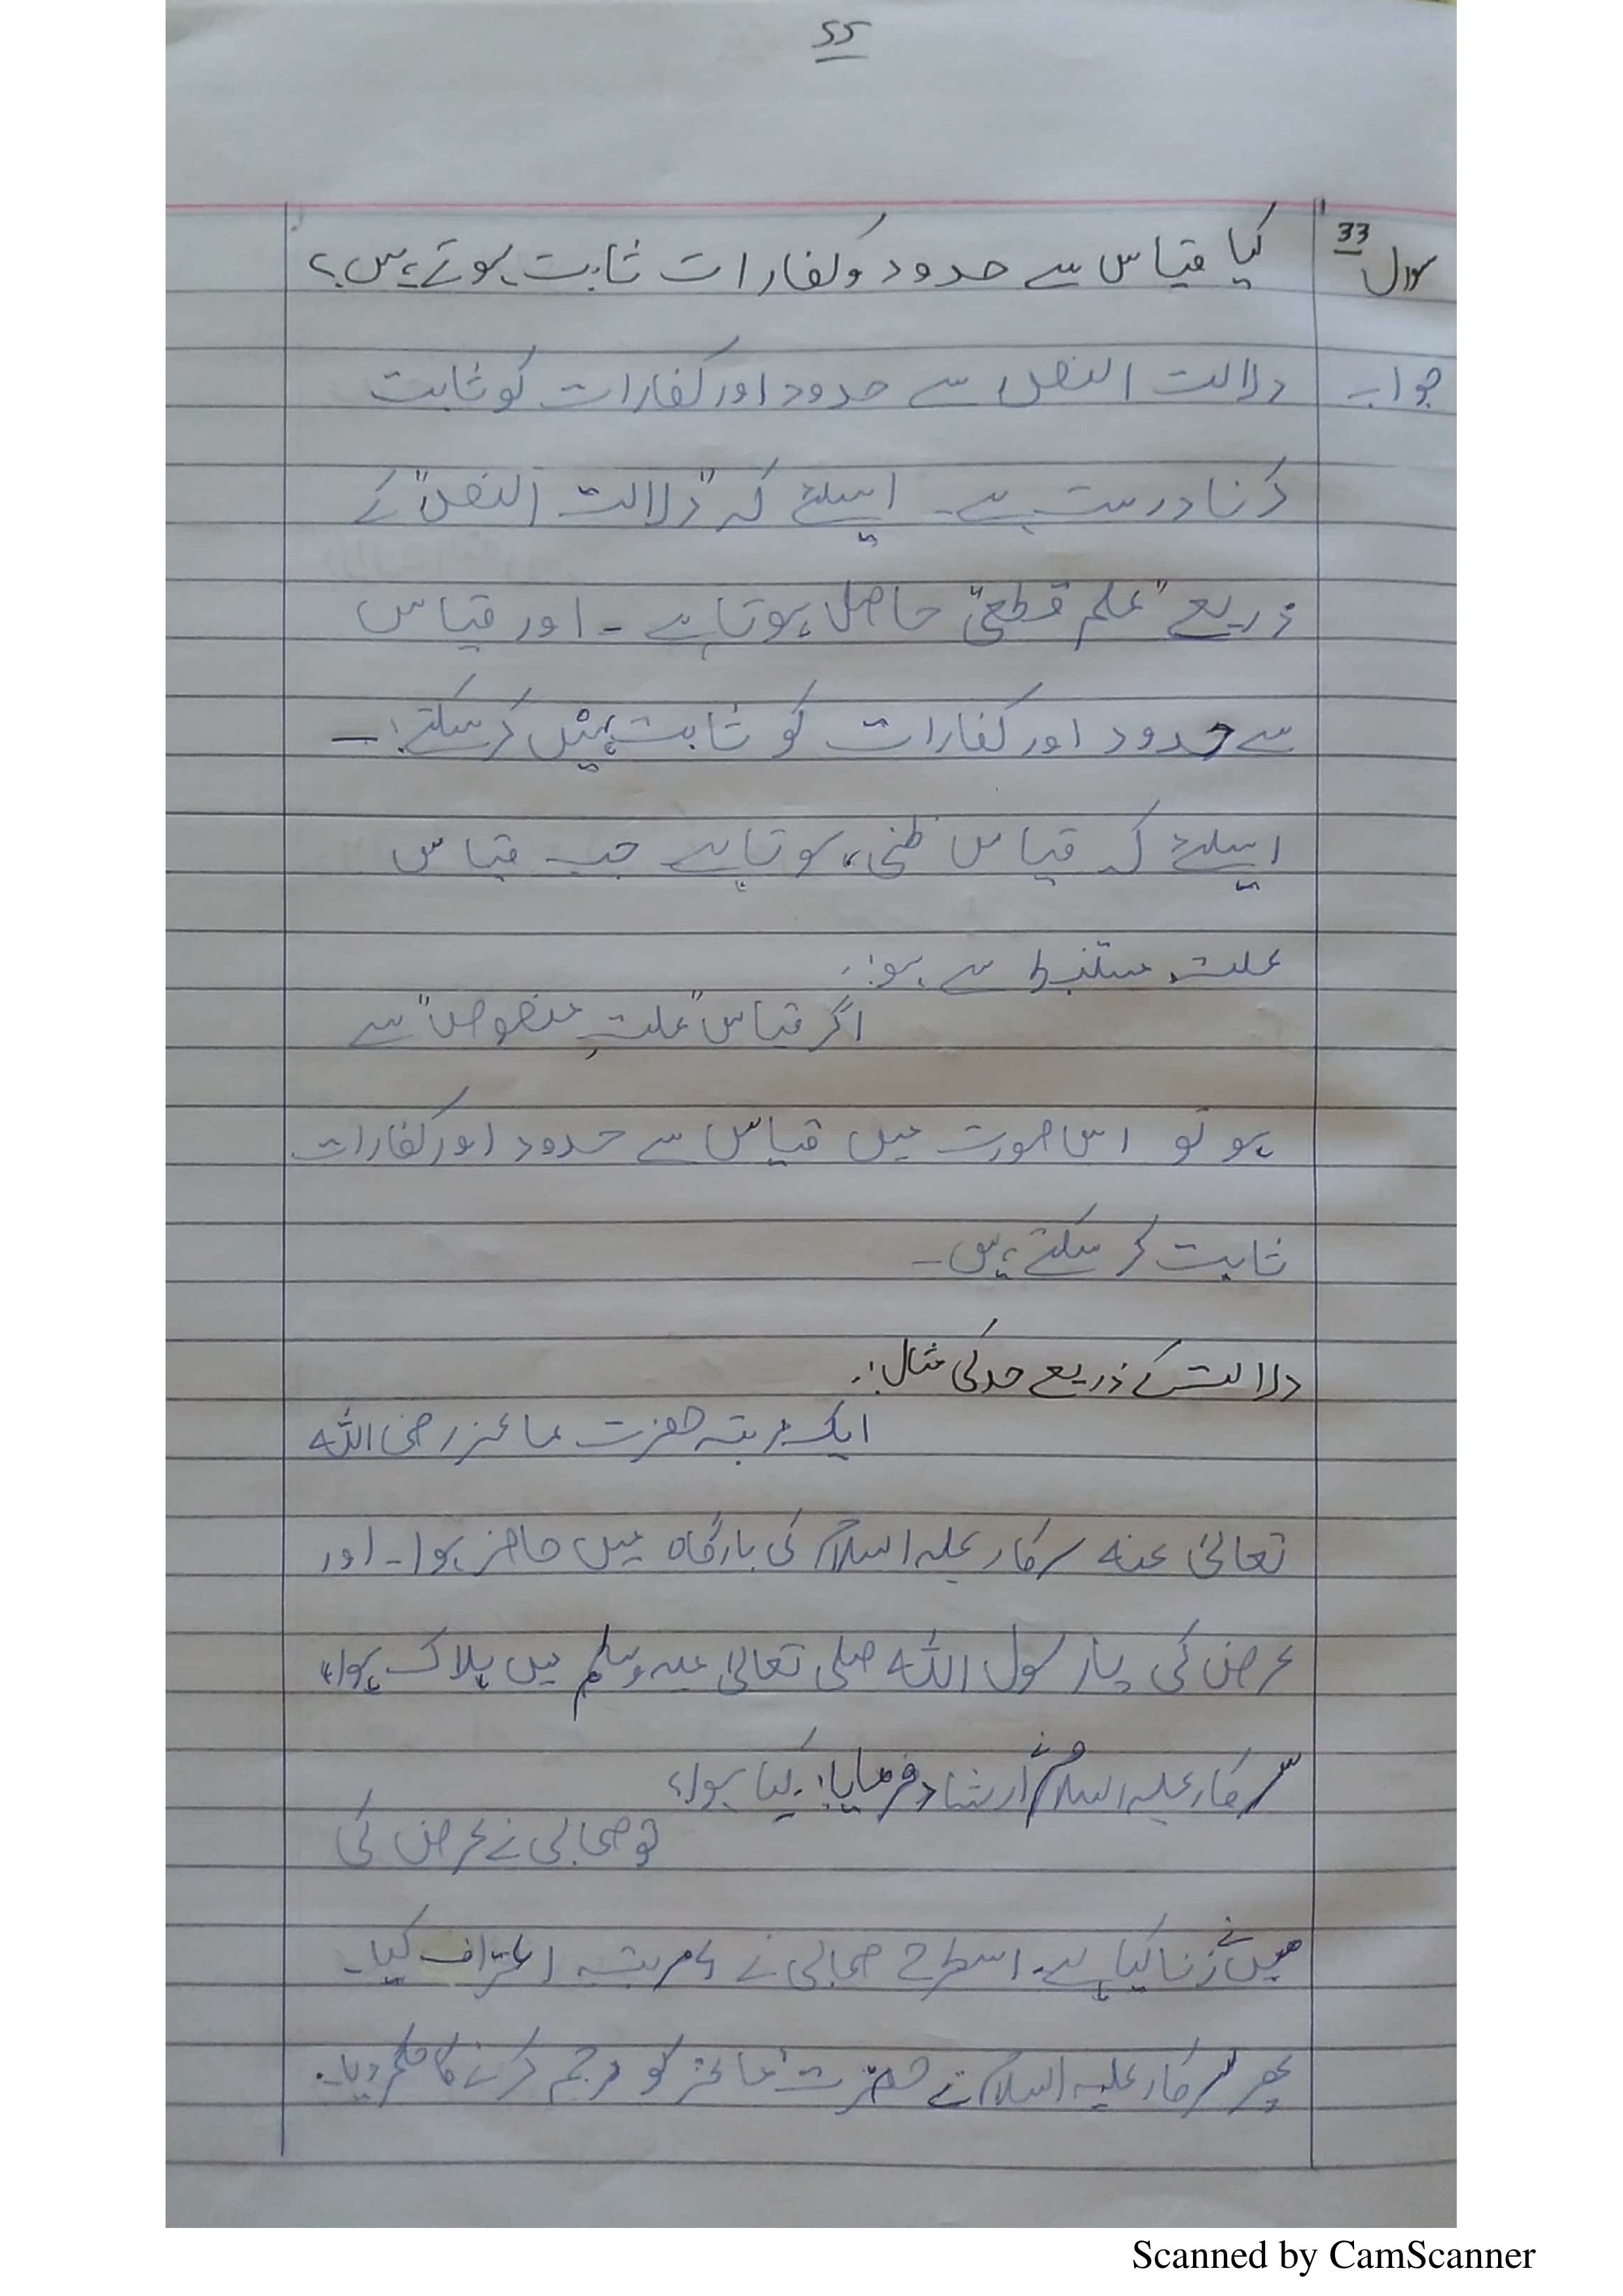 55
سوال 33 کیا قیاس سے حدود و کفارات ثابت ہوتے ہیں؟
جواب دلالت النص سے حدود اور کفارات کو ثابت
کرنا درست ہے۔ اسلئے کہ "دلالت النص" کے
ذریعے "علم قطعی" حاصل ہوتا ہے ۔ اور قیاس
سے حدود اور کفارات کو ثابت نہیں کر سکتے! ۔
اسلئے کہ قیاس ظنی ہوتا ہے جب قیاس
علت مستنبط سے ہو:
اگر قیاس "علتِ منصوص" سے
ہو تو اس صورت میں قیاس سے حدود اور کفارات
ثابت کر سکتے ہیں۔
دلالت کے ذریعے حد کی مثال:
ایک مرتبہ حضرت ماعز رضی اللہ
تعالیٰ عنہ سرکار علیہ السلام کی بارگاہ میں حاضر ہوا۔ اور
عرض کی یا رسول اللہ صلی تعالیٰ علیہ وسلم میں ہلاک ہوا،
سرکار علیہ السلام نے ارشاد فرمایا: کیا ہوا؟
تو صحابی نے عرض کی
میں نے زنا کیا ہے۔ اسطرح صحابی نے ۴ مرتبہ اعتراف کیا۔
پھر سرکار علیہ السلام نے حضرت ماعز کو رجم کرنے کا حکم دیا۔
Scanned by CamScanner